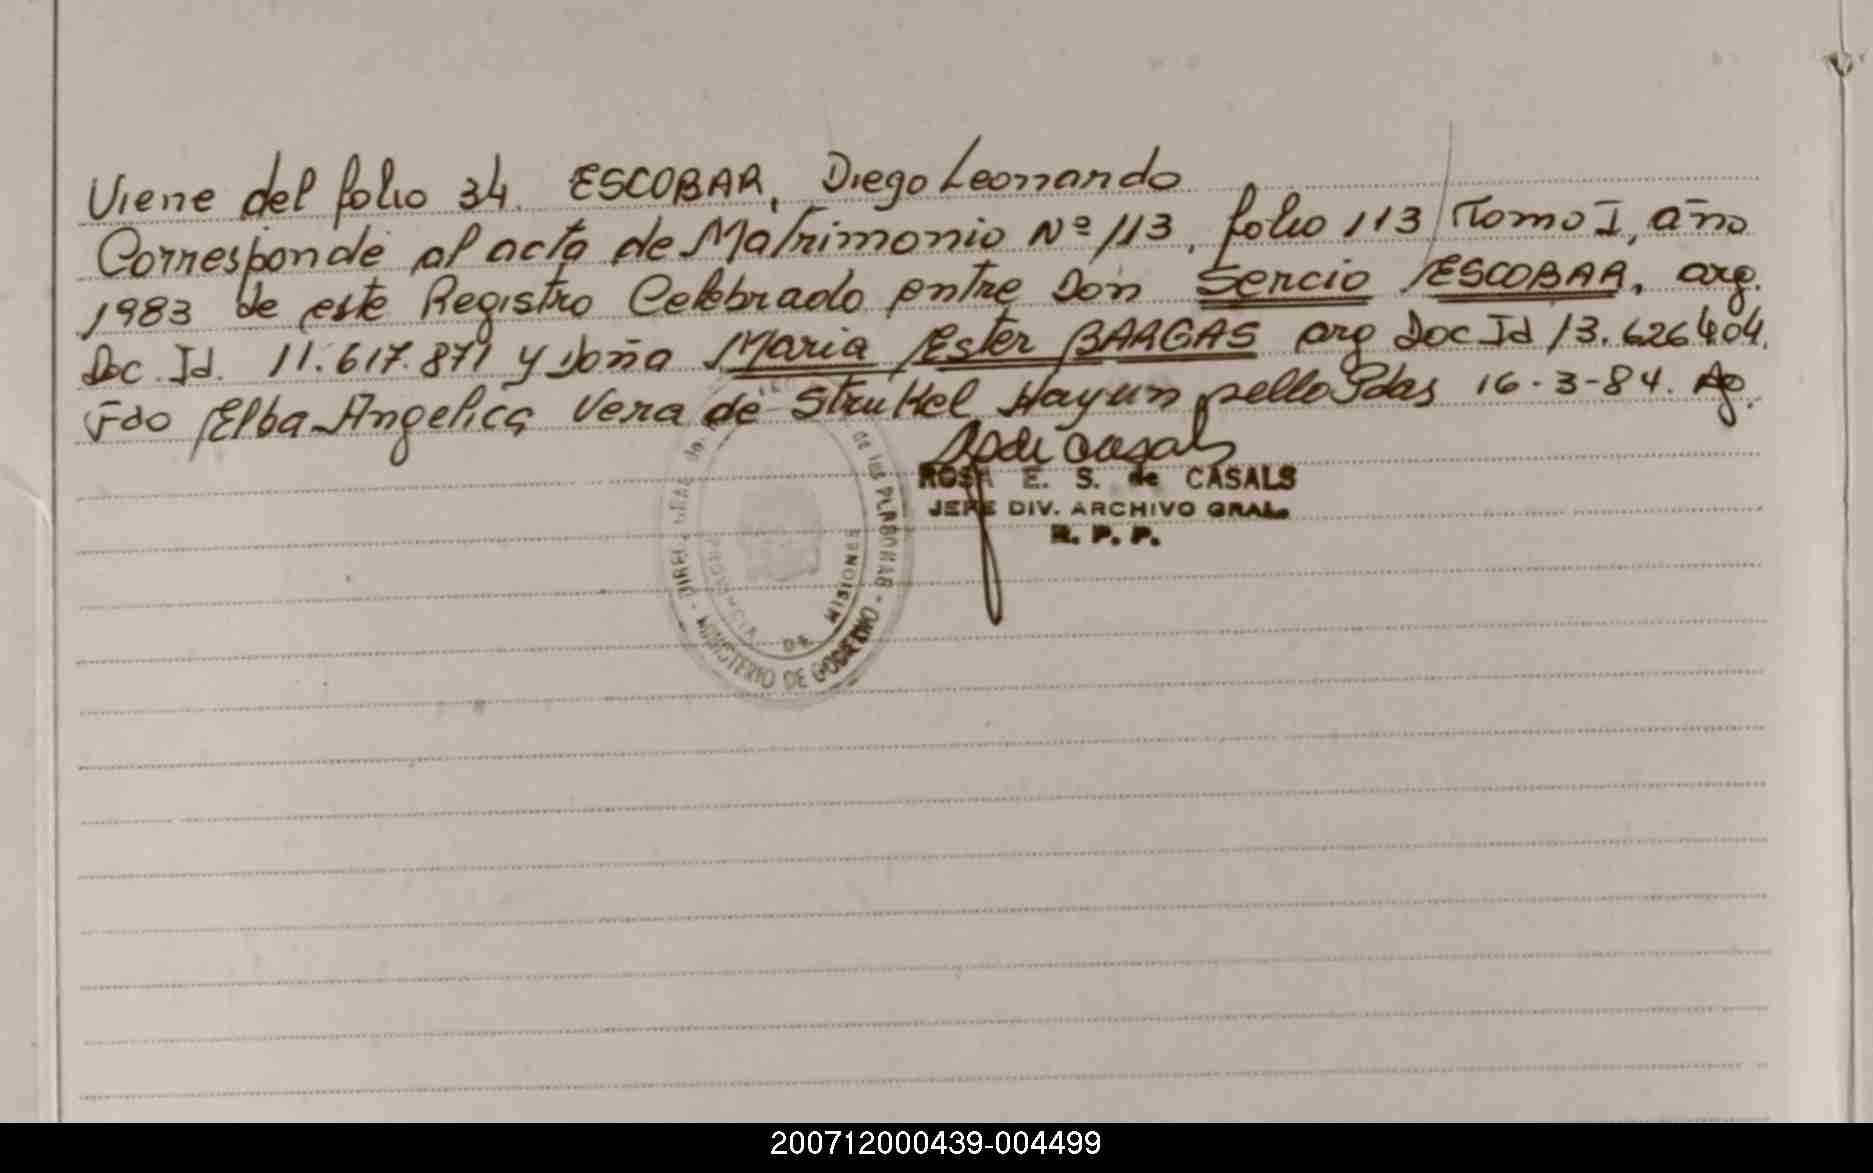 Viene del folio 34. ESCOBAR, Diego Leonardo
Corresponde al acta de Matrimonio Nº 113, folio 113 Tomo I, año
1983 de este Registro Celebrado entre Don Sercio ESCOBAR, arg.
Doc. Id. 11.617.871 y Doña Maria Ester BARGAS arg Doc Id 13.626.404.
Fdo Elba Angelica Vera de Strukel Hayun sello Pdas 16-3-84. Ag.
ROSA E. S. de CASALS
JEFE DIV. ARCHIVO GRAL.
R. P. P.
de las PERSONAS - MINISTERIO DE GOBIERNO
PROVINCIA DE MISIONES
200712000439-004499